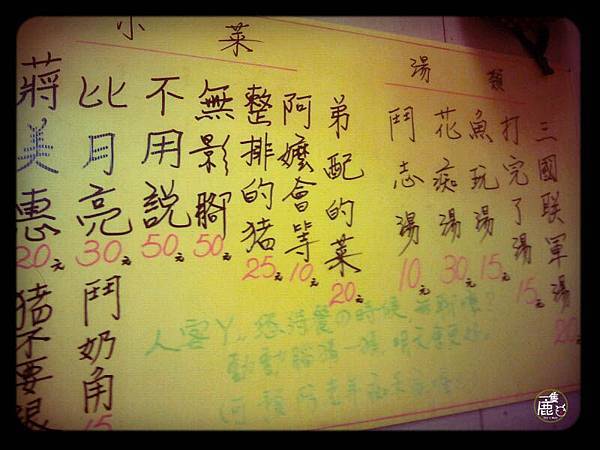 小菜
蔣美惠
20元
豬不要很
比月亮
30元
鬥奶角
15
不用說
50元
無影腳
50元
整排的豬
25元
阿嬤會等
10元
弟配的菜
20元
湯類
鬥志湯
10元
花痴湯
30元
魚玩湯
15元
打完了湯
15元
三國联軍湯
20元
人客ㄚ，您待餐の時候 無聊嗎？
動動腦猜一猜，
(可預防老年痴呆症喔
鹿